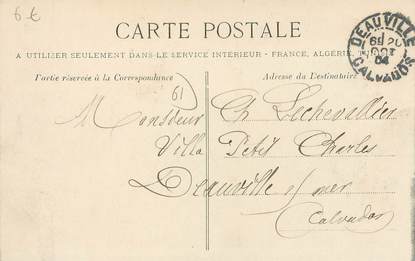 6-€
CARTE POSTALE
A UTILISER SEULEMENT DANS LE SERVICE INTÉRIEUR - FRANCE, ALGÉRIE,
Partie réservée à la Correspondance
Adresse du Destinataire
DEAUVILLE
CALVADOS
04
61
Monsieur Ch Lechevallier
Villa Petit Charles
Deauville s/ mer
Calvados